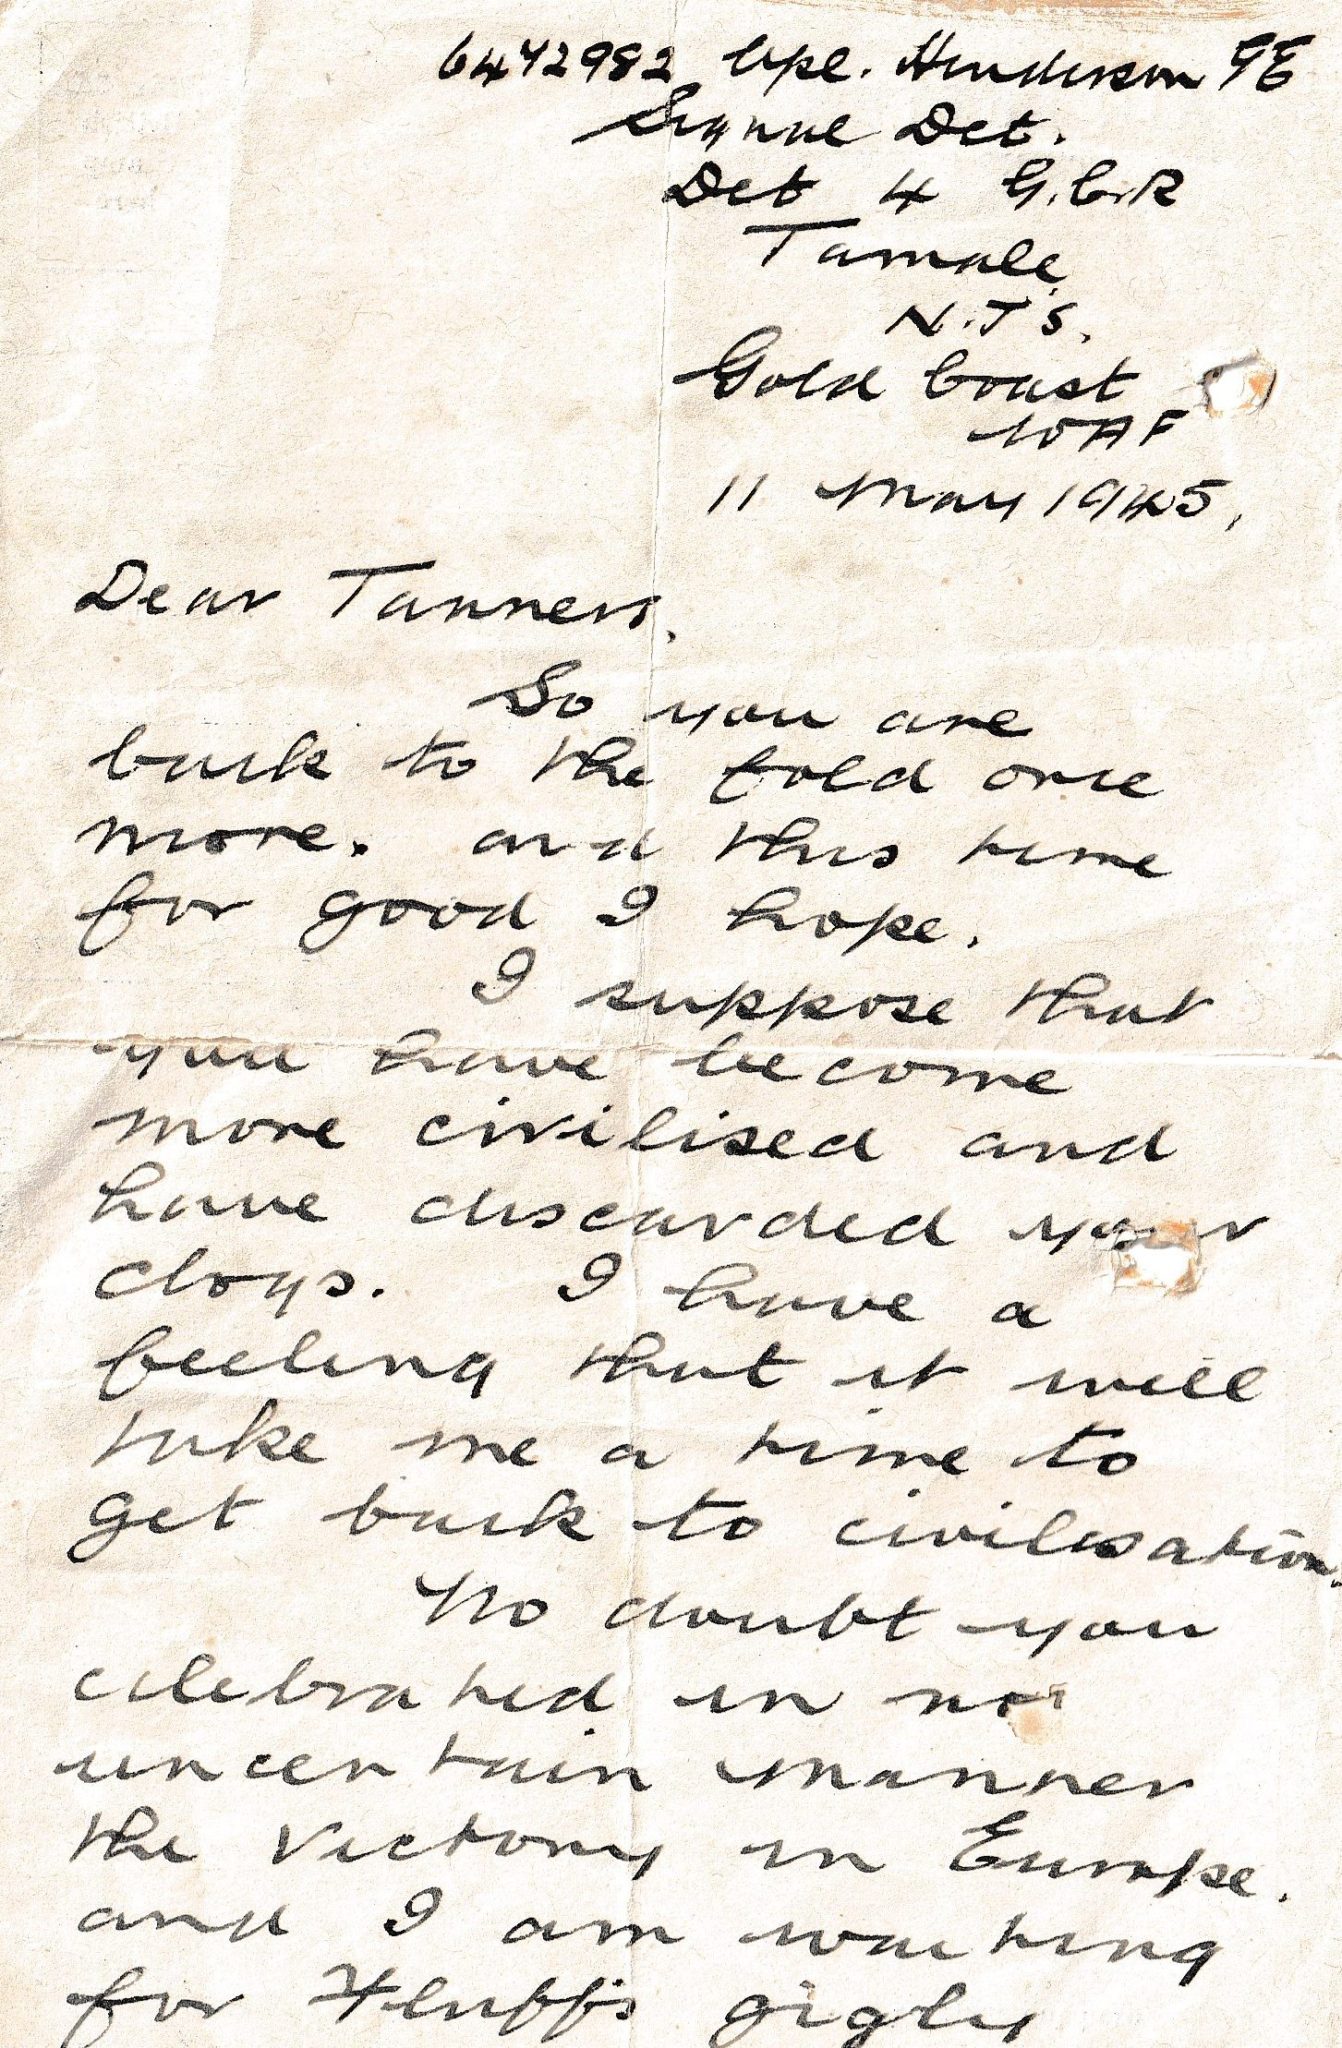 6472982 Cpl. Henderson GE
Signal Det.
Det 4 G.C.R
Tamale
N.T S.
Gold Coast
WAF
11 May 1945,
Dear Tanners,
So you are
back to the fold once
more. and this time
for good I hope.
I suppose that
you have become
more civilised and
have discarded your
clogs. I have a
feeling that it will
take me a time to
get back to civilisation.
No doubt you
celebrated in no
uncertain manner
the Victory in Europe.
and I am waiting
for Fluff's gigly